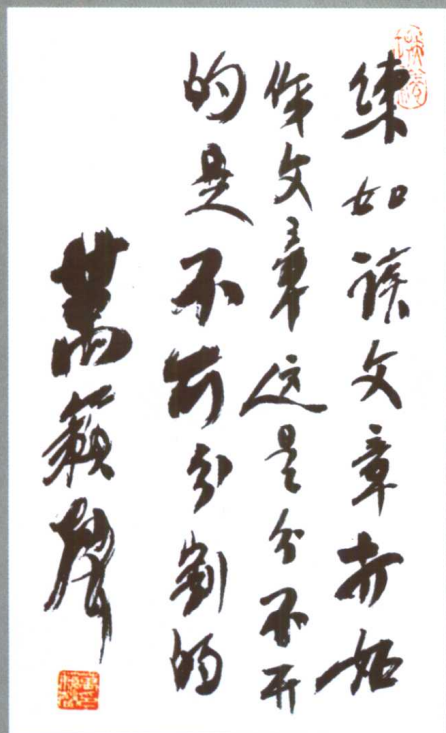 練如读文章打如
作文章这是分不开
的是不可分割的
萬籁聲